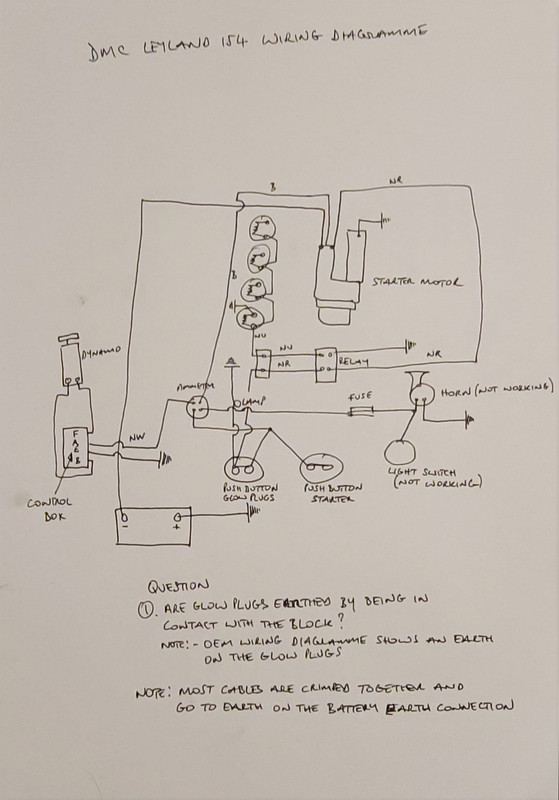 DMC LEYLAND 154 WIRING DIAGRAMME
B
NR
B
STARTER MOTOR
NU
DYNAMO
NU
NR
RELAY
NR
LAMP
FUSE
HORN (NOT WORKING)
F
A
E
B
NW
LIGHT SWITCH
(NOT WORKING)
PUSH BUTTON
GLOW PLUGS
PUSH BUTTON
STARTER
CONTROL
BOX
-
+
QUESTION
①. ARE GLOW PLUGS EARTHED BY BEING IN
CONTACT WITH THE BLOCK?
NOTE:- OEM WIRING DIAGRAMME SHOWS AN EARTH
ON THE GLOW PLUGS
NOTE: MOST CABLES ARE CRIMPED TOGETHER AND
GO TO EARTH ON THE BATTERY EARTH CONNECTION